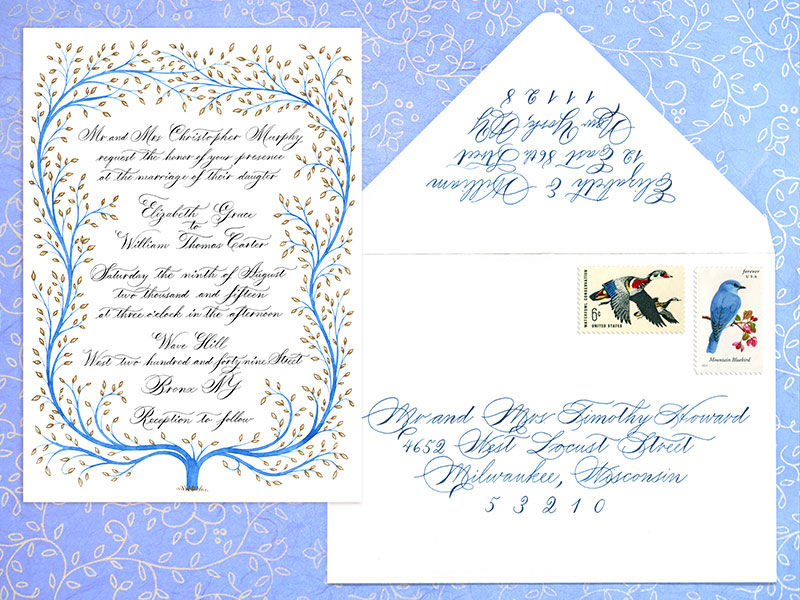 Mr and Mrs Christopher Murphy
request the honor of your presence
at the marriage of their daugter
Elizabeth Grace
to
William Thomas Carter
Saturday the ninth of August
two thousand and fifteen
at three o'clock in the afternoon
Wave Hill
West two hundred and forty nine Street
Bronx NY
Reception to follow
Elizabeth & William
12 East 86th Street
New York, NY
1 1 1 2 8
WATERFOWL CONSERVATION
6c
UNITED STATES
forever
USA
Mountain Bluebird
Mr and Mrs Timothy Howard
4652 West Locust Street
Milwaukee, Wisconsin
5 3 2 1 0